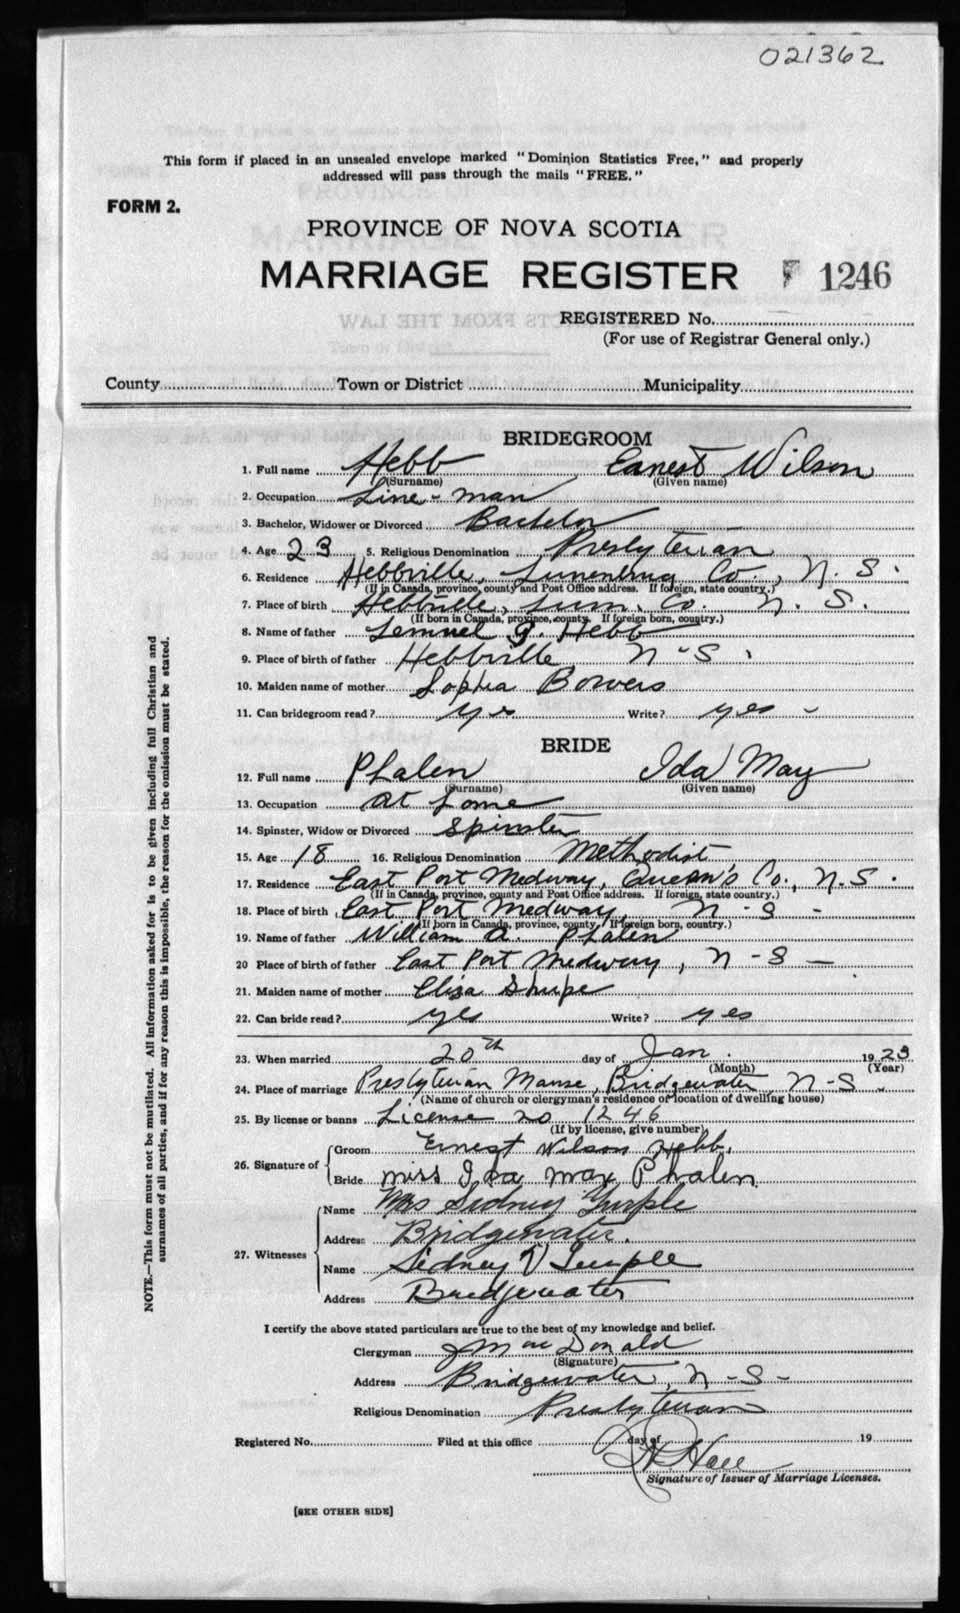 021362
This form if placed in an unsealed envelope marked "Dominion Statistics Free," and properly
addressed will pass through the mails "FREE."
FORM 2.
PROVINCE OF NOVA SCOTIA
MARRIAGE REGISTER 1246
REGISTERED No.
(For use of Registrar General only.)
County Town or District Municipality
BRIDEGROOM
1. Full name Hebb Earnest Wilson
(Surname) (Given name)
2. Occupation Line-man
3. Bachelor, Widower or Divorced Bachelor
4. Age 23 5. Religious Denomination Presbyterian
6. Residence Hebbville, Lunenburg Co., N. S.
(If in Canada, province, county and Post Office address. If foreign, state country.)
7. Place of birth Hebbville, Lun. Co. N. S.
(If born in Canada, province, county. If foreign born, country.)
8. Name of father Lemuel J. Hebb
9. Place of birth of father Hebbville N-S.
10. Maiden name of mother Sophia Bowers
11. Can bridegroom read? yes Write? yes -
BRIDE
12. Full name Phalen Ida May
(Surname) (Given name)
13. Occupation at home
14. Spinster, Widow or Divorced Spinster
15. Age 18 16. Religious Denomination Methodist
17. Residence East Port Medway, Queen's Co., N.S.
(If in Canada, province, county and Post Office address. If foreign, state country.)
18. Place of birth East Port Medway, N-S-
(If born in Canada, province, county. If foreign born, country.)
19. Name of father William A. Phalen
20 Place of birth of father East Port Medway, N-S-
21. Maiden name of mother Eliza Shupe
22. Can bride read? yes Write? yes
23. When married 20th day of Jan. 1923
(Month) (Year)
24. Place of marriage Presbyterian Manse, Bridgewater, N-S.
(Name of church or clergyman's residence or location of dwelling house)
25. By license or banns License no 1246
(If by license, give number)
26. Signature of Groom Ernest Wilson Hebb.
Bride miss Ida may Phalen
27. Witnesses Name Mrs Sidney
Address Bridgewater.
Name Sidney
Address Bridgewater
I certify the above stated particulars are true to the best of my knowledge and belief.
Clergyman J MacDonald
(Signature)
Address Bridgewater, N-S-
Religious Denomination Presbyterian
Registered No. Filed at this office day of 19
Signature of Issuer of Marriage Licenses.
[SEE OTHER SIDE]
NOTE.—This form must not be mutilated. All information asked for is to be given including full Christian and
surnames of all parties, and if for any reason this is impossible, the reason for the omission must be stated.